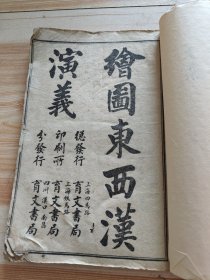 繪圖東西漢
演義
總發行 上海四馬路 育文書局
印刷所 上海 馬路 育文書局
分發行 四川 漢口 育文書局